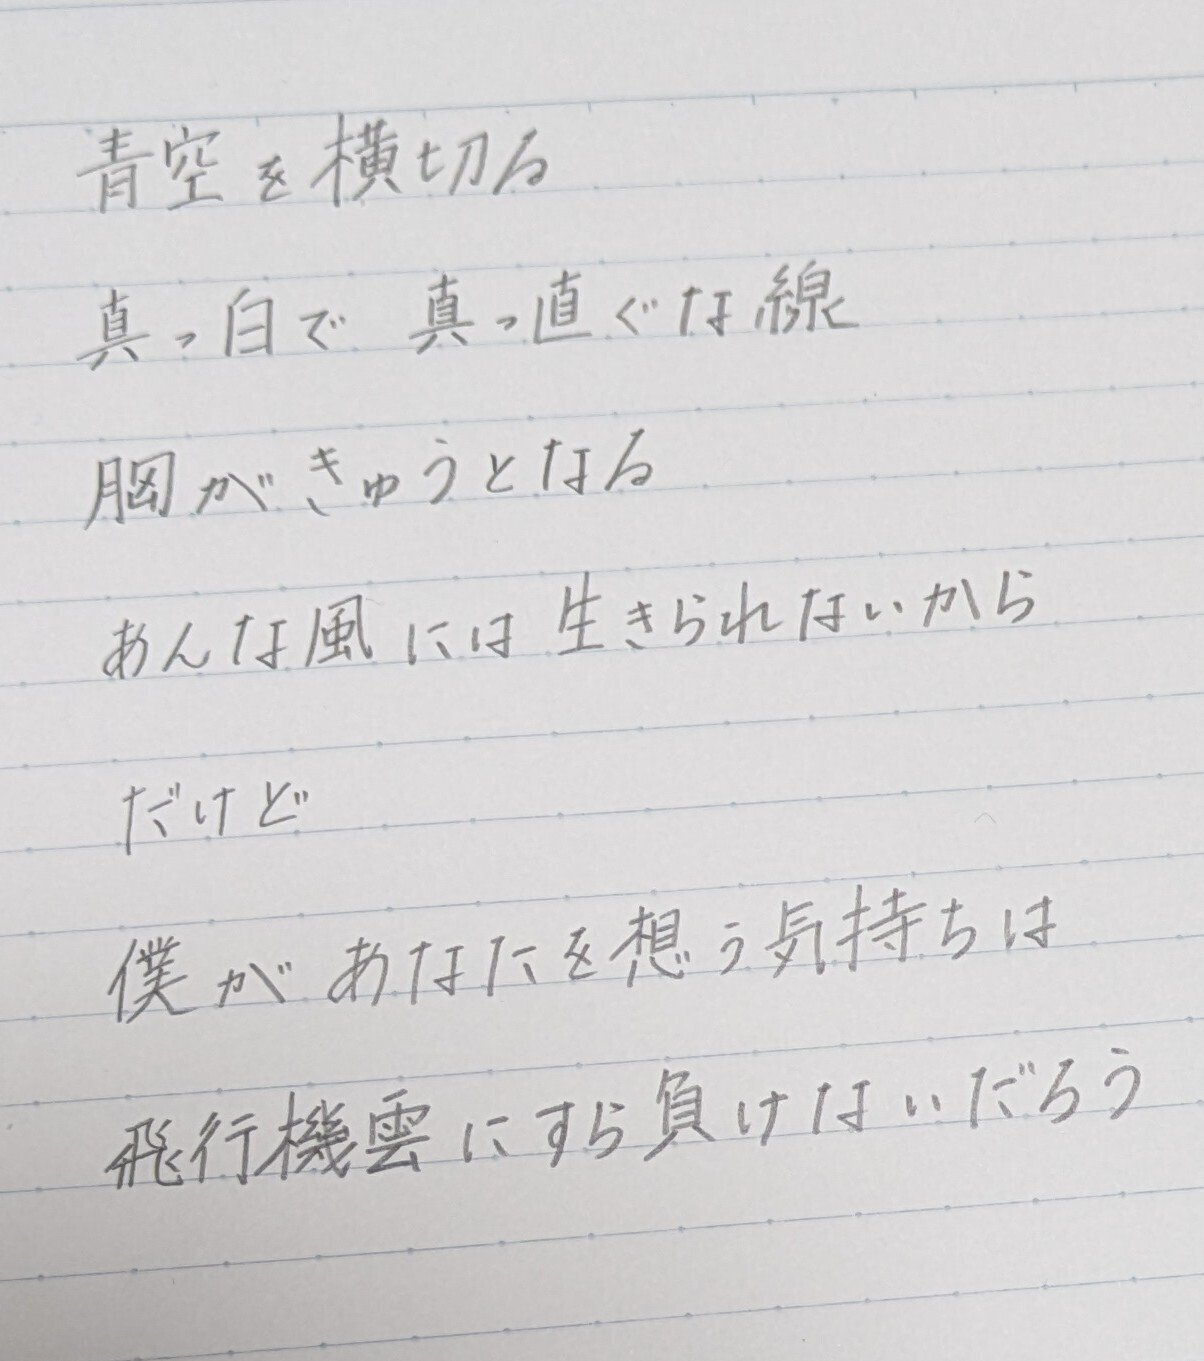 青空を横切る
真っ白で 真っ直ぐな線
胸がきゅうとなる
あんな風には生きられないから
だけど
僕があなたを想う気持ちは
飛行機雲にすら負けないだろう